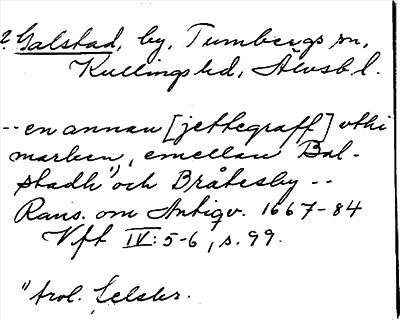 ? Galstad, by, Tumbergs sn,
Kullings hd, Älvsb l.
-- en annan [jettegraff] vthi
marken, emellan Bal-
stadh och Bråtesby --
Rans. om Antiqv. 1667-84
Vft IV: 5-6, s. 99.